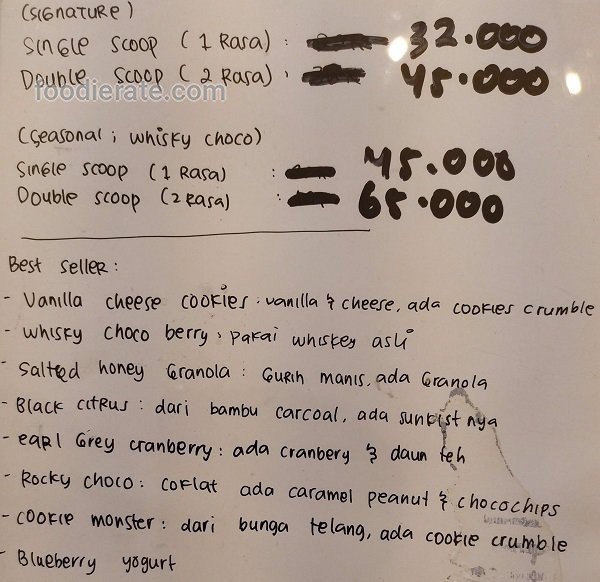 (SIGNATURE)
SINGLE SCOOP (1 Rasa) : 32.000
DOUBLE SCOOP (2 Rasa) : 45.000
foodierate.com
(Seasonal ; Whisky Choco)
SINGLE SCOOP (1 Rasa) : 45.000
DOUBLE SCOOP (2 Rasa) : 65.000
Best seller :
- Vanilla cheese cookies : vanilla & cheese, ada cookies crumble
- Whisky choco berry : pakai whiskey asli
- Salted honey Granola : Gurih manis, ada Granola
- Black citrus : dari bambu carcoal, ada sunkist nya
- earl Grey cranberry : ada cranbery & daun teh
- Rocky choco : coklat ada caramel peanut & chocochips
- cookie monster : dari bunga telang, ada cookie crumble
- Blueberry yogurt